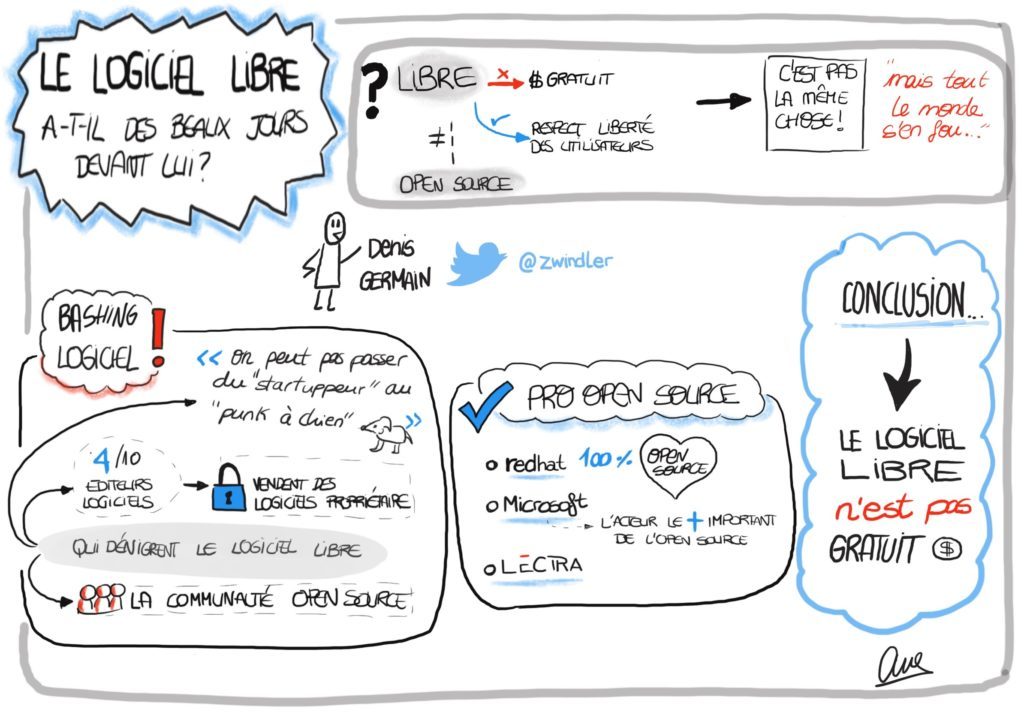 LE LOGICIEL LIBRE
A-T-IL DES BEAUX JOURS
DEVANT LUI?
?
LIBRE
x
$ GRATUIT
RESPECT LIBERTÉ
DES UTILISATEURS
≠
OPEN SOURCE
C'EST PAS
LA MÊME
CHOSE!
"mais tout
le monde
s'en fou..."
Denis
GERMAIN
@zwindler
BASHING
LOGICIEL
!
<< On peut pas passer
du "startuppeur" au
"punk à chien" >>
4/10
EDITEURS
LOGICIELS
VENDENT DES
LOGICIELS PROPRIÉTAIRE
QUI DÉNIGRENT LE LOGICIEL LIBRE
LA COMMUNAUTÉ OPEN SOURCE
PRO OPEN SOURCE
redhat 100%
OPEN
SOURCE
Microsoft
L'ACTEUR LE + IMPORTANT
DE L'OPEN SOURCE
LECTRA
CONCLUSION...
LE LOGICIEL
LIBRE
n'est pas
GRATUIT $